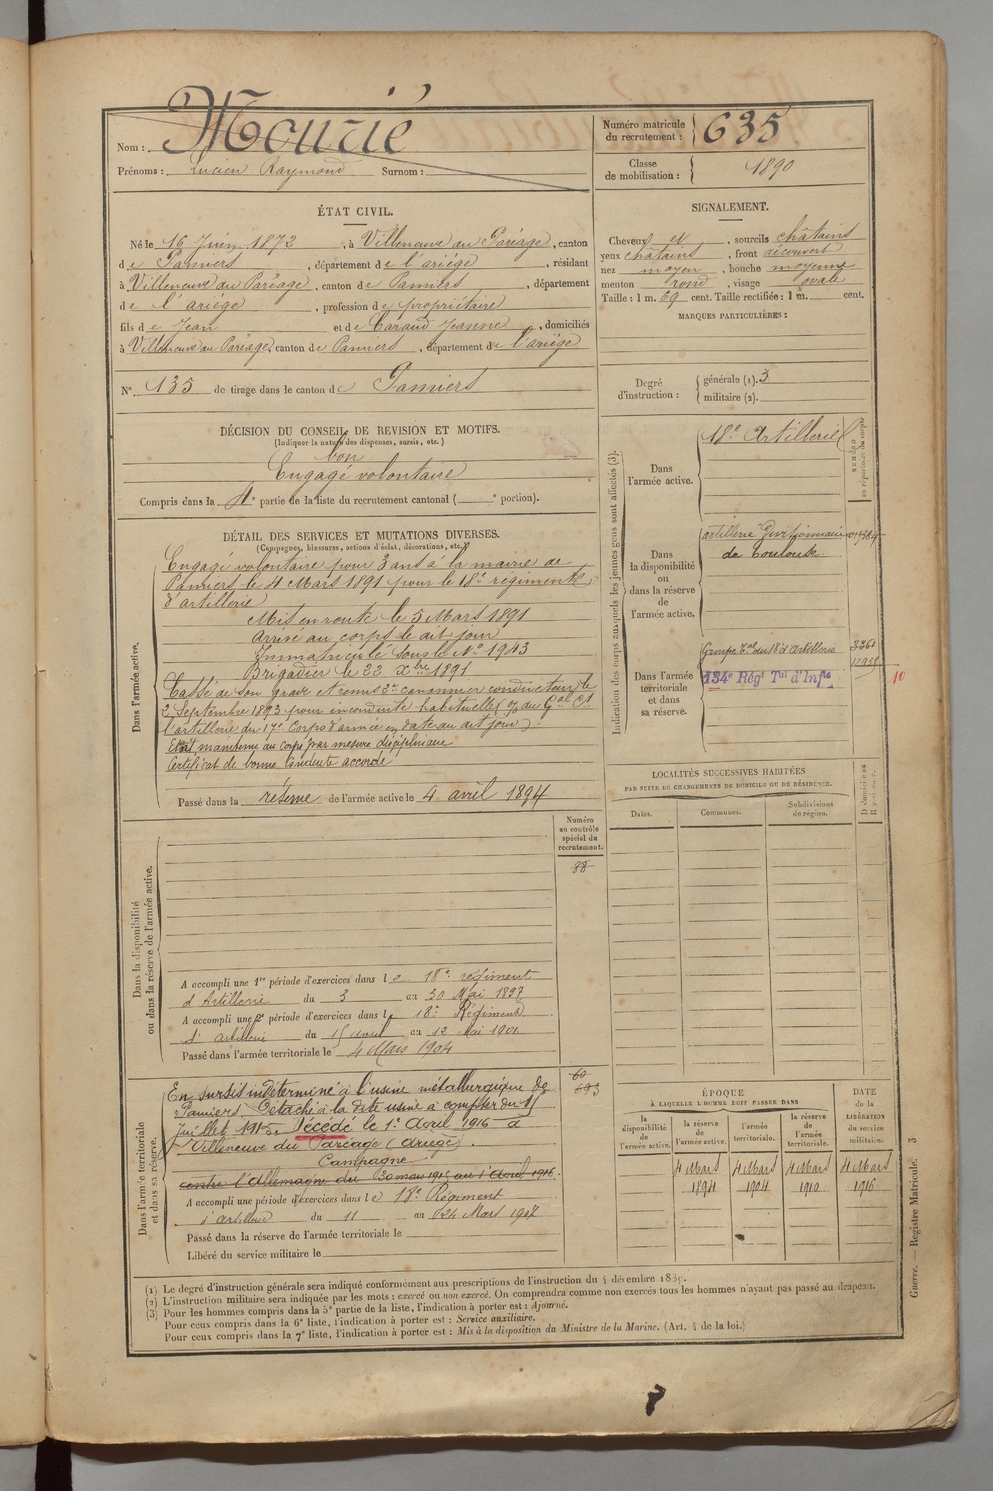 Nom : Mourié
Prénoms : Lucien Raymond Surnom :
Numéro matricule du recrutement : 635
Classe de mobilisation : 1890
ÉTAT CIVIL.
Né le 16 Juin 1872, à Villeneuve du Paréage, canton
de Pamiers, département de l'ariége, résidant
à Villeneuve du Paréage, canton de Pamiers, département
de l'ariége, profession de propriétaire
fils de Jean et de Caraud Jeanne, domiciliés
à Villeneuve du Paréage, canton de Pamiers, département de l'ariége
N° 135 de tirage dans le canton de Pamiers
SIGNALEMENT.
Cheveux et, sourcils châtains
yeux châtains, front découvert
nez moyen, bouche moyenne
menton rond, visage ovale
Taille : 1 m. 69 cent. Taille rectifiée : 1 m. cent.
MARQUES PARTICULIÈRES :
Degré d'instruction :
générale (1). 3
militaire (2).
DÉCISION DU CONSEIL DE REVISION ET MOTIFS.
(Indiquer la nature des dispenses, sursis, etc.)
bon
Engagé volontaire
Compris dans la 4e partie de la liste du recrutement cantonal ( e portion).
DÉTAIL DES SERVICES ET MUTATIONS DIVERSES.
(Campagnes, blessures, actions d'éclat, décorations, etc.)
Dans l'armée active.
Engagé volontaire pour 3 ans à la mairie de
Pamiers le 4 Mars 1891 pour le 18e régiment
d'artillerie
Mis en route le 5 Mars 1891
Arrivé au corps le dit jour
Immatriculé sous le No 1943
Brigadier le 22 Xbre 1891
Cassé de son grade et remis 2e canonnier conducteur le
2 Septembre 1893 pour inconduite habituelle
l'artillerie du 17e Corps d'armée en date du dit jour)
Etait maintenu au corps par mesure disciplinaire
Certificat de bonne Conduite accordé
Passé dans la réserve de l'armée active le 4 avril 1894
Indication des corps auxquels les jeunes gens sont affectés (3).
NUMÉRO au répertoire du corps
Dans l'armée active.
18e Artillerie
Dans la disponibilité ou dans la réserve de l'armée active.
artillerie Divisionnaire
de Toulouse
Dans l'armée territoriale et dans sa réserve.
Groupe Tal du 18e d'Artillerie
134e Régt Tal d'Infie
10
LOCALITÉS SUCCESSIVES HABITÉES
PAR SUITE DE CHANGEMENTS DE DOMICILE OU DE RÉSIDENCE.
Dates. Communes. Subdivisions de région.
Numéro au contrôle spécial du recrutement.
88
Dans la disponibilité ou dans la réserve de l'armée active.
A accompli une 1re période d'exercices dans le 18e régiment
d'Artillerie du 3 au 30 Mai 1897
A accompli une 2e période d'exercices dans le 18e Régiment
d'artillerie du 15 avril au 12 Mai 1901
Passé dans l'armée territoriale le 4 Mars 1904
60
693
Dans l'armée territoriale et dans sa réserve.
En sursis indéterminé à l'usine métallurgique de
Pamiers, Détaché à la dite usine à compter du 11
Juillet 1915. Décédé le 1er Avril 1916 à
Villeneuve du Paréage (Ariège).
Campagne
contre l'Allemagne du 30 mars 1915 au 1er Avril 1916.
A accompli une période d'exercices dans le 18e Régiment
d'artillerie du 11 au 24 Mars 1907
Passé dans la réserve de l'armée territoriale le
Libéré du service militaire le
ÉPOQUE
À LAQUELLE L'HOMME DOIT PASSER DANS
la disponibilité de l'armée active.
la réserve de l'armée active.
l'armée territoriale.
la réserve de l'armée territoriale.
DATE de la LIBÉRATION du service militaire.
4 Mars 4 Mars 4 Mars 4 Mars
1894 1904 1910 1916
Guerre. — Registre Matricule. 3
(1) Le degré d'instruction générale sera indiqué conformement aux prescriptions de l'instruction du 4 décembre 1889.
(2) L'instruction militaire sera indiquée par les mots : exercé ou non exercé. On comprendra comme non exercés tous les hommes n'ayant pas passé au drapeau.
(3) Pour les hommes compris dans la 5e partie de la liste, l'indication à porter est : Ajourné.
Pour ceux compris dans la 6e liste, l'indication à porter est : Service auxiliaire.
Pour ceux compris dans la 7e liste, l'indication à porter est : Mis à la disposition du Ministre de la Marine. (Art. 4 de la loi.)